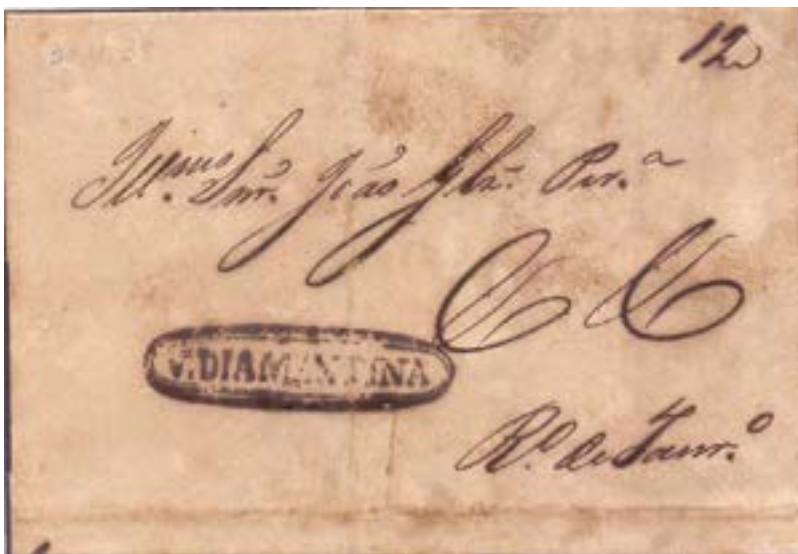 12
Ill.mo Snr. João Glz. Per.a
V.DIAMANTINA
R.o de Janr.o